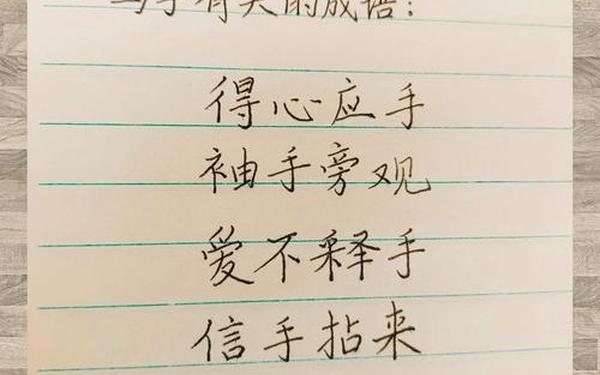 与手有关的成语：
得心应手
袖手旁观
爱不释手
信手拈来